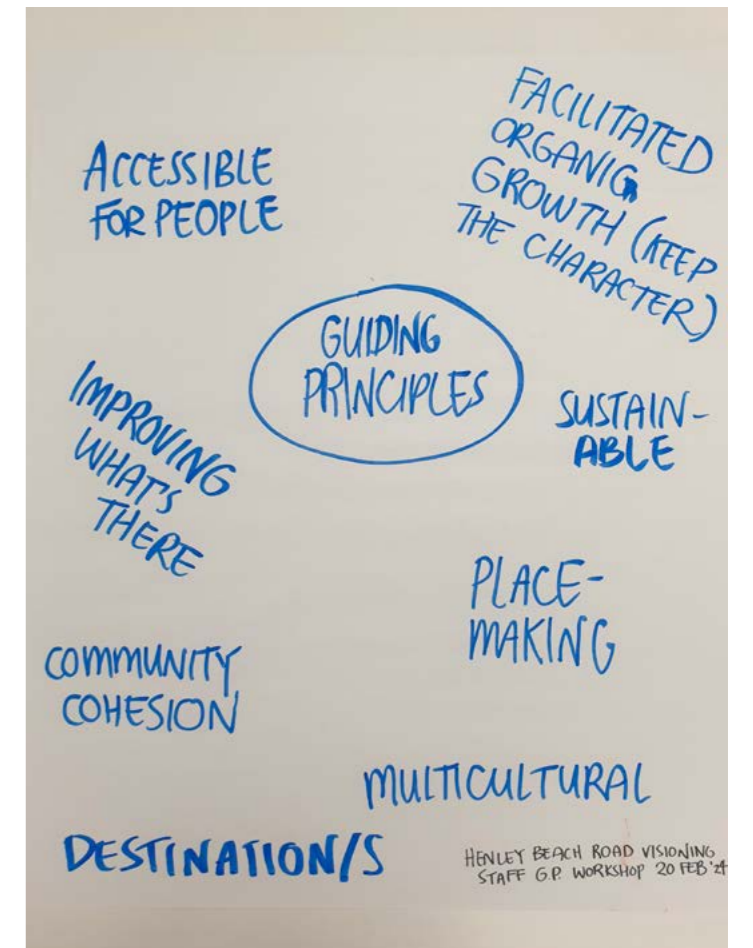 ACCESSIBLE
FOR PEOPLE
FACILITATED
ORGANIC
GROWTH (KEEP
THE CHARACTER)
GUIDING
PRINCIPLES
IMPROVING
WHAT'S
THERE
SUSTAIN-
ABLE
PLACE-
MAKING
COMMUNITY
COHESION
MULTICULTURAL
DESTINATION/S
HENLEY BEACH ROAD VISIONING
STAFF G.P. WORKSHOP 20 FEB '24